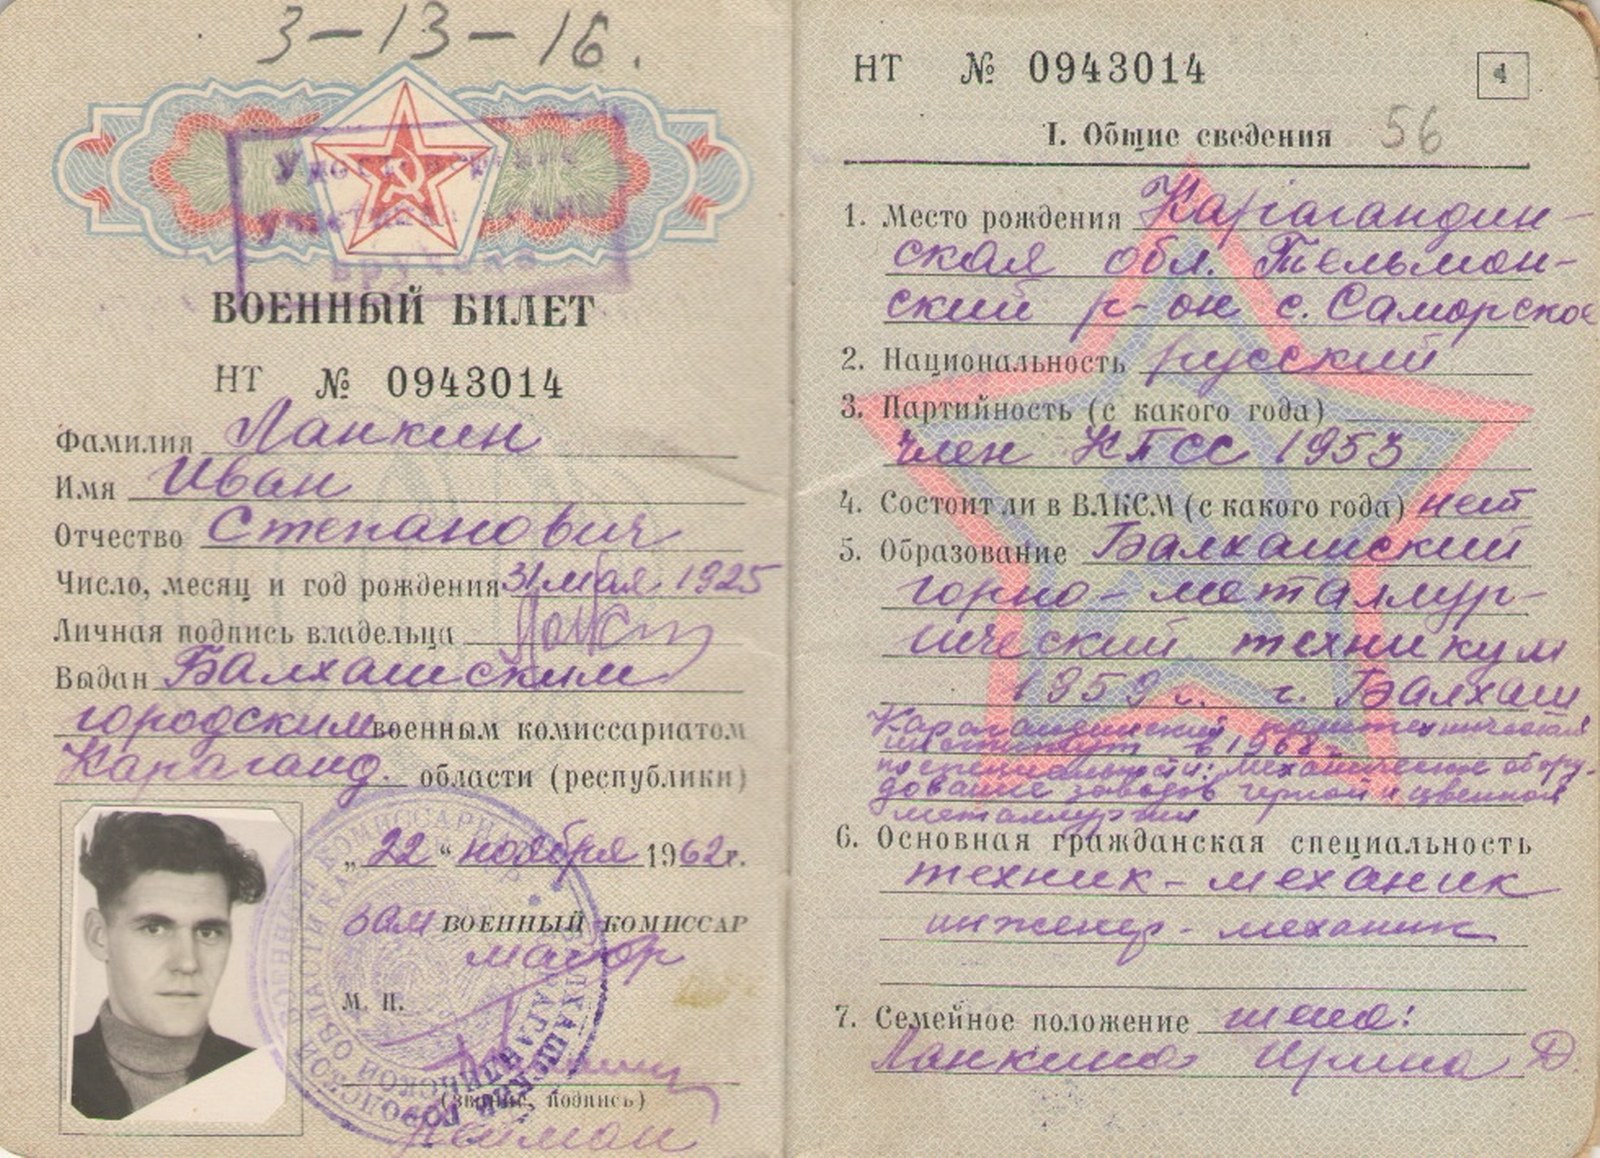 3-13-16.
Удостоверение
участника войны
вручено
ВОЕННЫЙ БИЛЕТ
НТ № 0943014
Фамилия Ланкин
Имя Иван
Отчество Степанович
Число, месяц и год рождения 31 мая 1925
Личная подпись владельца
Выдан Балхашским
городским военным комиссариатом
Караганд. области (республики)
„22“ ноября 1962 г.
зам ВОЕННЫЙ КОМИССАР
майор
М. П.
(звание, подпись)
НТ № 0943014
4
I. Общие сведения 56
1. Место рождения Карагандин-
ская обл. Тельман-
ский р-он с. Саморское
2. Национальность русский
3. Партийность (с какого года)
член КПСС 1953
4. Состоит ли в ВЛКСМ (с какого года) нет
5. Образование Балхашский
горно-металлур-
гический техникум
1959 г. г. Балхаш
Карагандинский политехнический
институт в 1968 г.
по специальности: механическое обору-
дование заводов черной и цветной
металлургии
6. Основная гражданская специальность
техник-механик
инженер-механик
7. Семейное положение жена:
Ланкина Ирина Д.